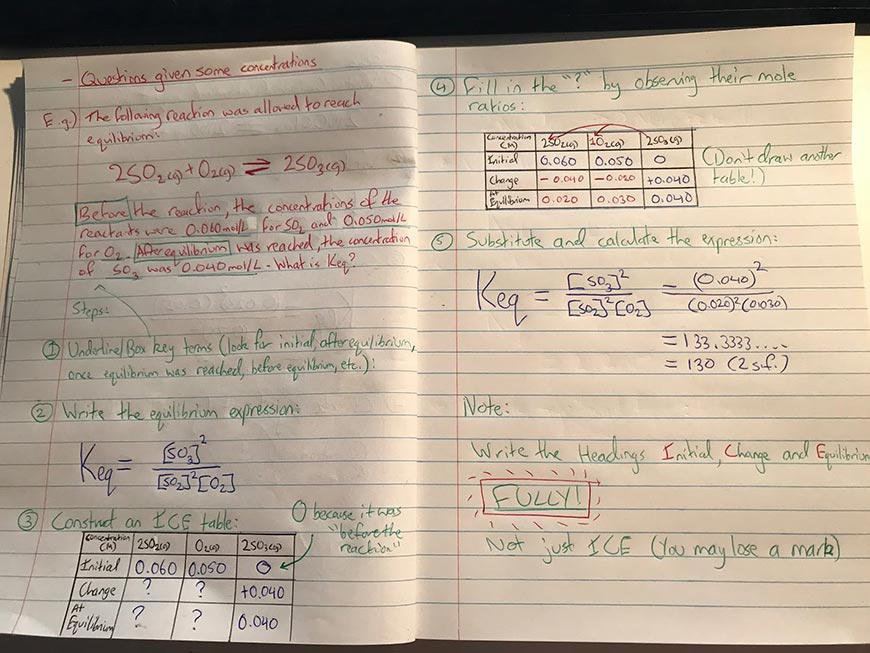 - Questions given some concentrations
E.g.) The following reaction was allowed to reach
equilibrium:
2SO₂(g) + O₂(g) ⇌ 2SO₃(g)
Before the reaction, the concentrations of the
reactants were 0.060mol/L for SO₂ and 0.050mol/L
for O₂. After equilibrium was reached, the concentration
of SO₃ was 0.040mol/L. What is Keq?
Steps:
① Underline/Box key terms (look for initial, after equilibrium,
once equilibrium was reached, before equilibrium, etc.):
② Write the equilibrium expression:
Keq = [SO₃]² / [SO₂]²[O₂]
③ Construct an ICE table:
0 because it was
"before the
reaction"
Concentration (M) 2SO₂(g) O₂(g) 2SO₃(g)
Initial 0.060 0.050 0
Change ? ? +0.040
At Equilibrium ? ? 0.040
④ Fill in the "?" by observing their mole
ratios:
Concentration (M) 2SO₂(g) 1O₂(g) 2SO₃(g)
Initial 0.060 0.050 0
Change -0.040 -0.020 +0.040
At Equilibrium 0.020 0.030 0.040
(Don't draw another
table!)
⑤ Substitute and calculate the expression:
Keq = [SO₃]² / [SO₂]²[O₂] = (0.040)² / (0.020)²(0.030)
= 133.3333....
= 130 (2 s.f.)
Note:
Write the Headings Initial, Change and Equilibrium
FULLY!
Not just ICE (You may lose a mark)